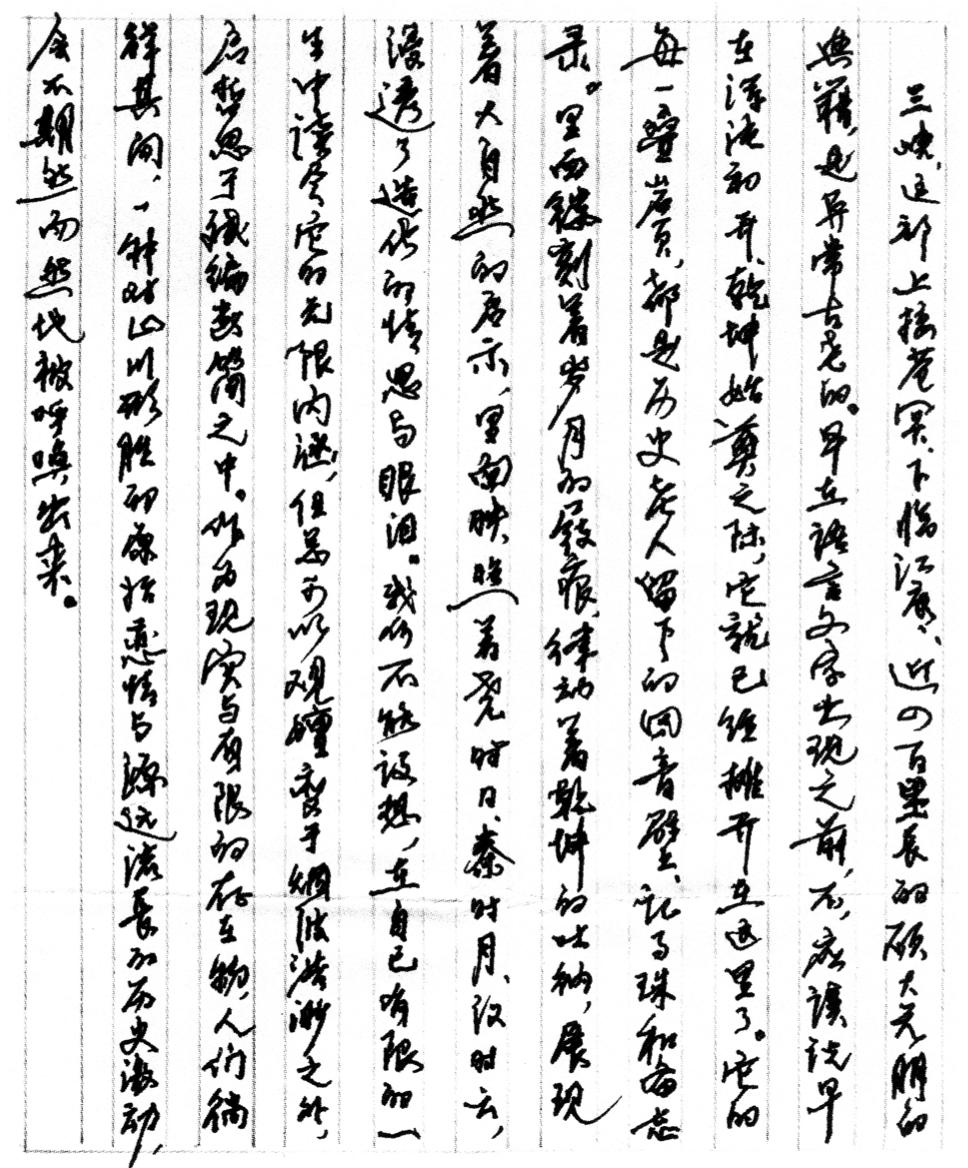 三峡,这部上接苍冥、下临江底、近四百里长的硕大无朋的
典籍,是异常古老的。早在语言文字出现之前,不,应该说早
在浑沌初开、乾坤始奠之际,它就已经摊开在这里了。它的
每一叠岩页,都是历史老人留下的回音壁、记事珠和备忘
录。里面镂刻着岁月的屐痕,律动着乾坤的吐纳,展现
着大自然的启示,里面映照着尧时日、秦时月、汉时云,
浸透了造化的情思与眼泪。我们不能设想,在自己有限的一
生中读尽它的无限内涵,但总可以观嬗变于烟波浩渺之外,
启哲思于残编断简之中。作为现实与有限的存在物,人们徜
徉其间,一种对山川形胜的原始恋情与源远流长的历史激动,
会不期然而然地被呼唤出来。